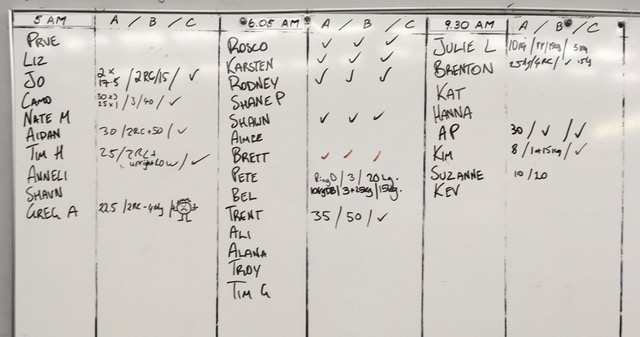 5 AM A / B / C
PRUE
LIZ
JO 2 x 17.5 / 2RC/15/ ✓
CAMO 30x3 25x1 / 3/40 / ✓
NATE M
AIDAN 30 / 2RC+50 / ✓
TIM H 25 / 2RC+ / ✓
ANNELI
SHAUN
GREG A 22.5 /2RC-40kg /
6.05 AM A / B / C
ROSCO ✓ ✓ ✓
KARSTEN ✓ ✓ ✓
RODNEY ✓ ✓ ✓
SHANE P
SHAUN ✓ ✓ ✓
AIMEE
BRETT ✓ / ✓ / ✓
PETE Ring D / 3 / 20kg.
BEL 10kgDB / 3+25kg / 15kg.
TRENT 35 / 50 / ✓
ALI
ALANA
TROY
TIM G
9.30 AM A / B / C
JULIE L 10kg / / 5kg
BRENTON 25kg/4RC/ ✓
KAT
HANNA
AP 30 / ✓ / ✓
KIM 8 / 1+15kg / ✓
SUZANNE 10 / 20
KEV